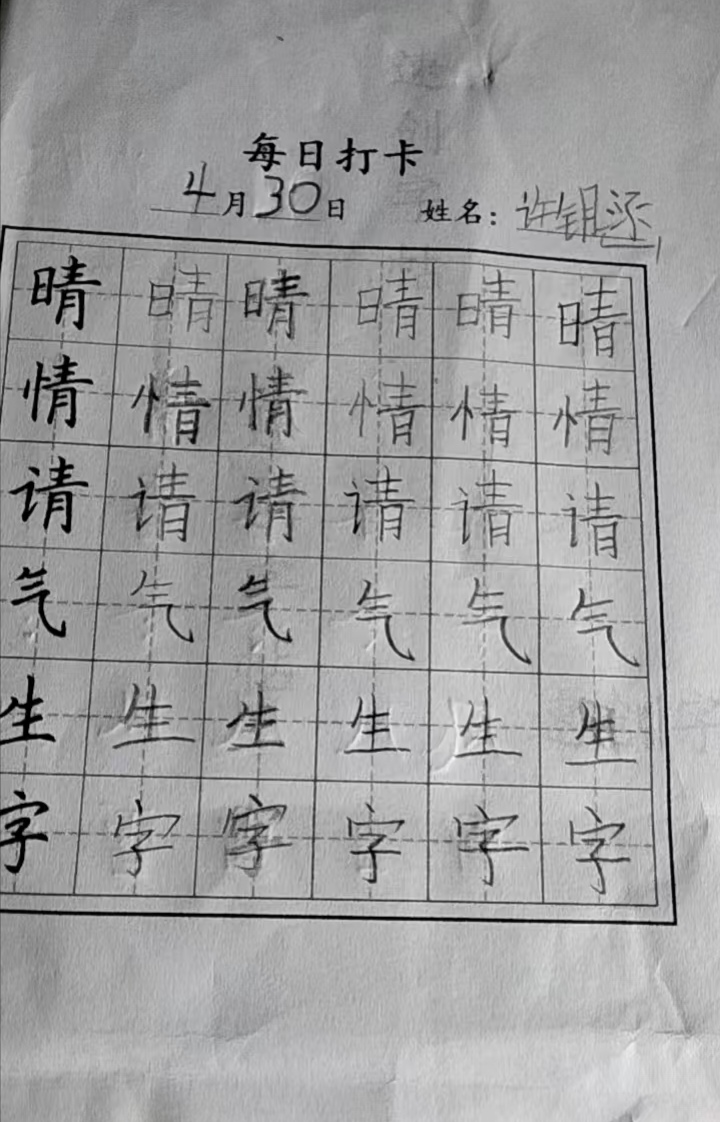 每日打卡
4月30日 姓名：许钥还
晴晴晴晴晴晴
情情情情情情
请请请请请请
气气气气气气
生生生生生生
字字字字字字